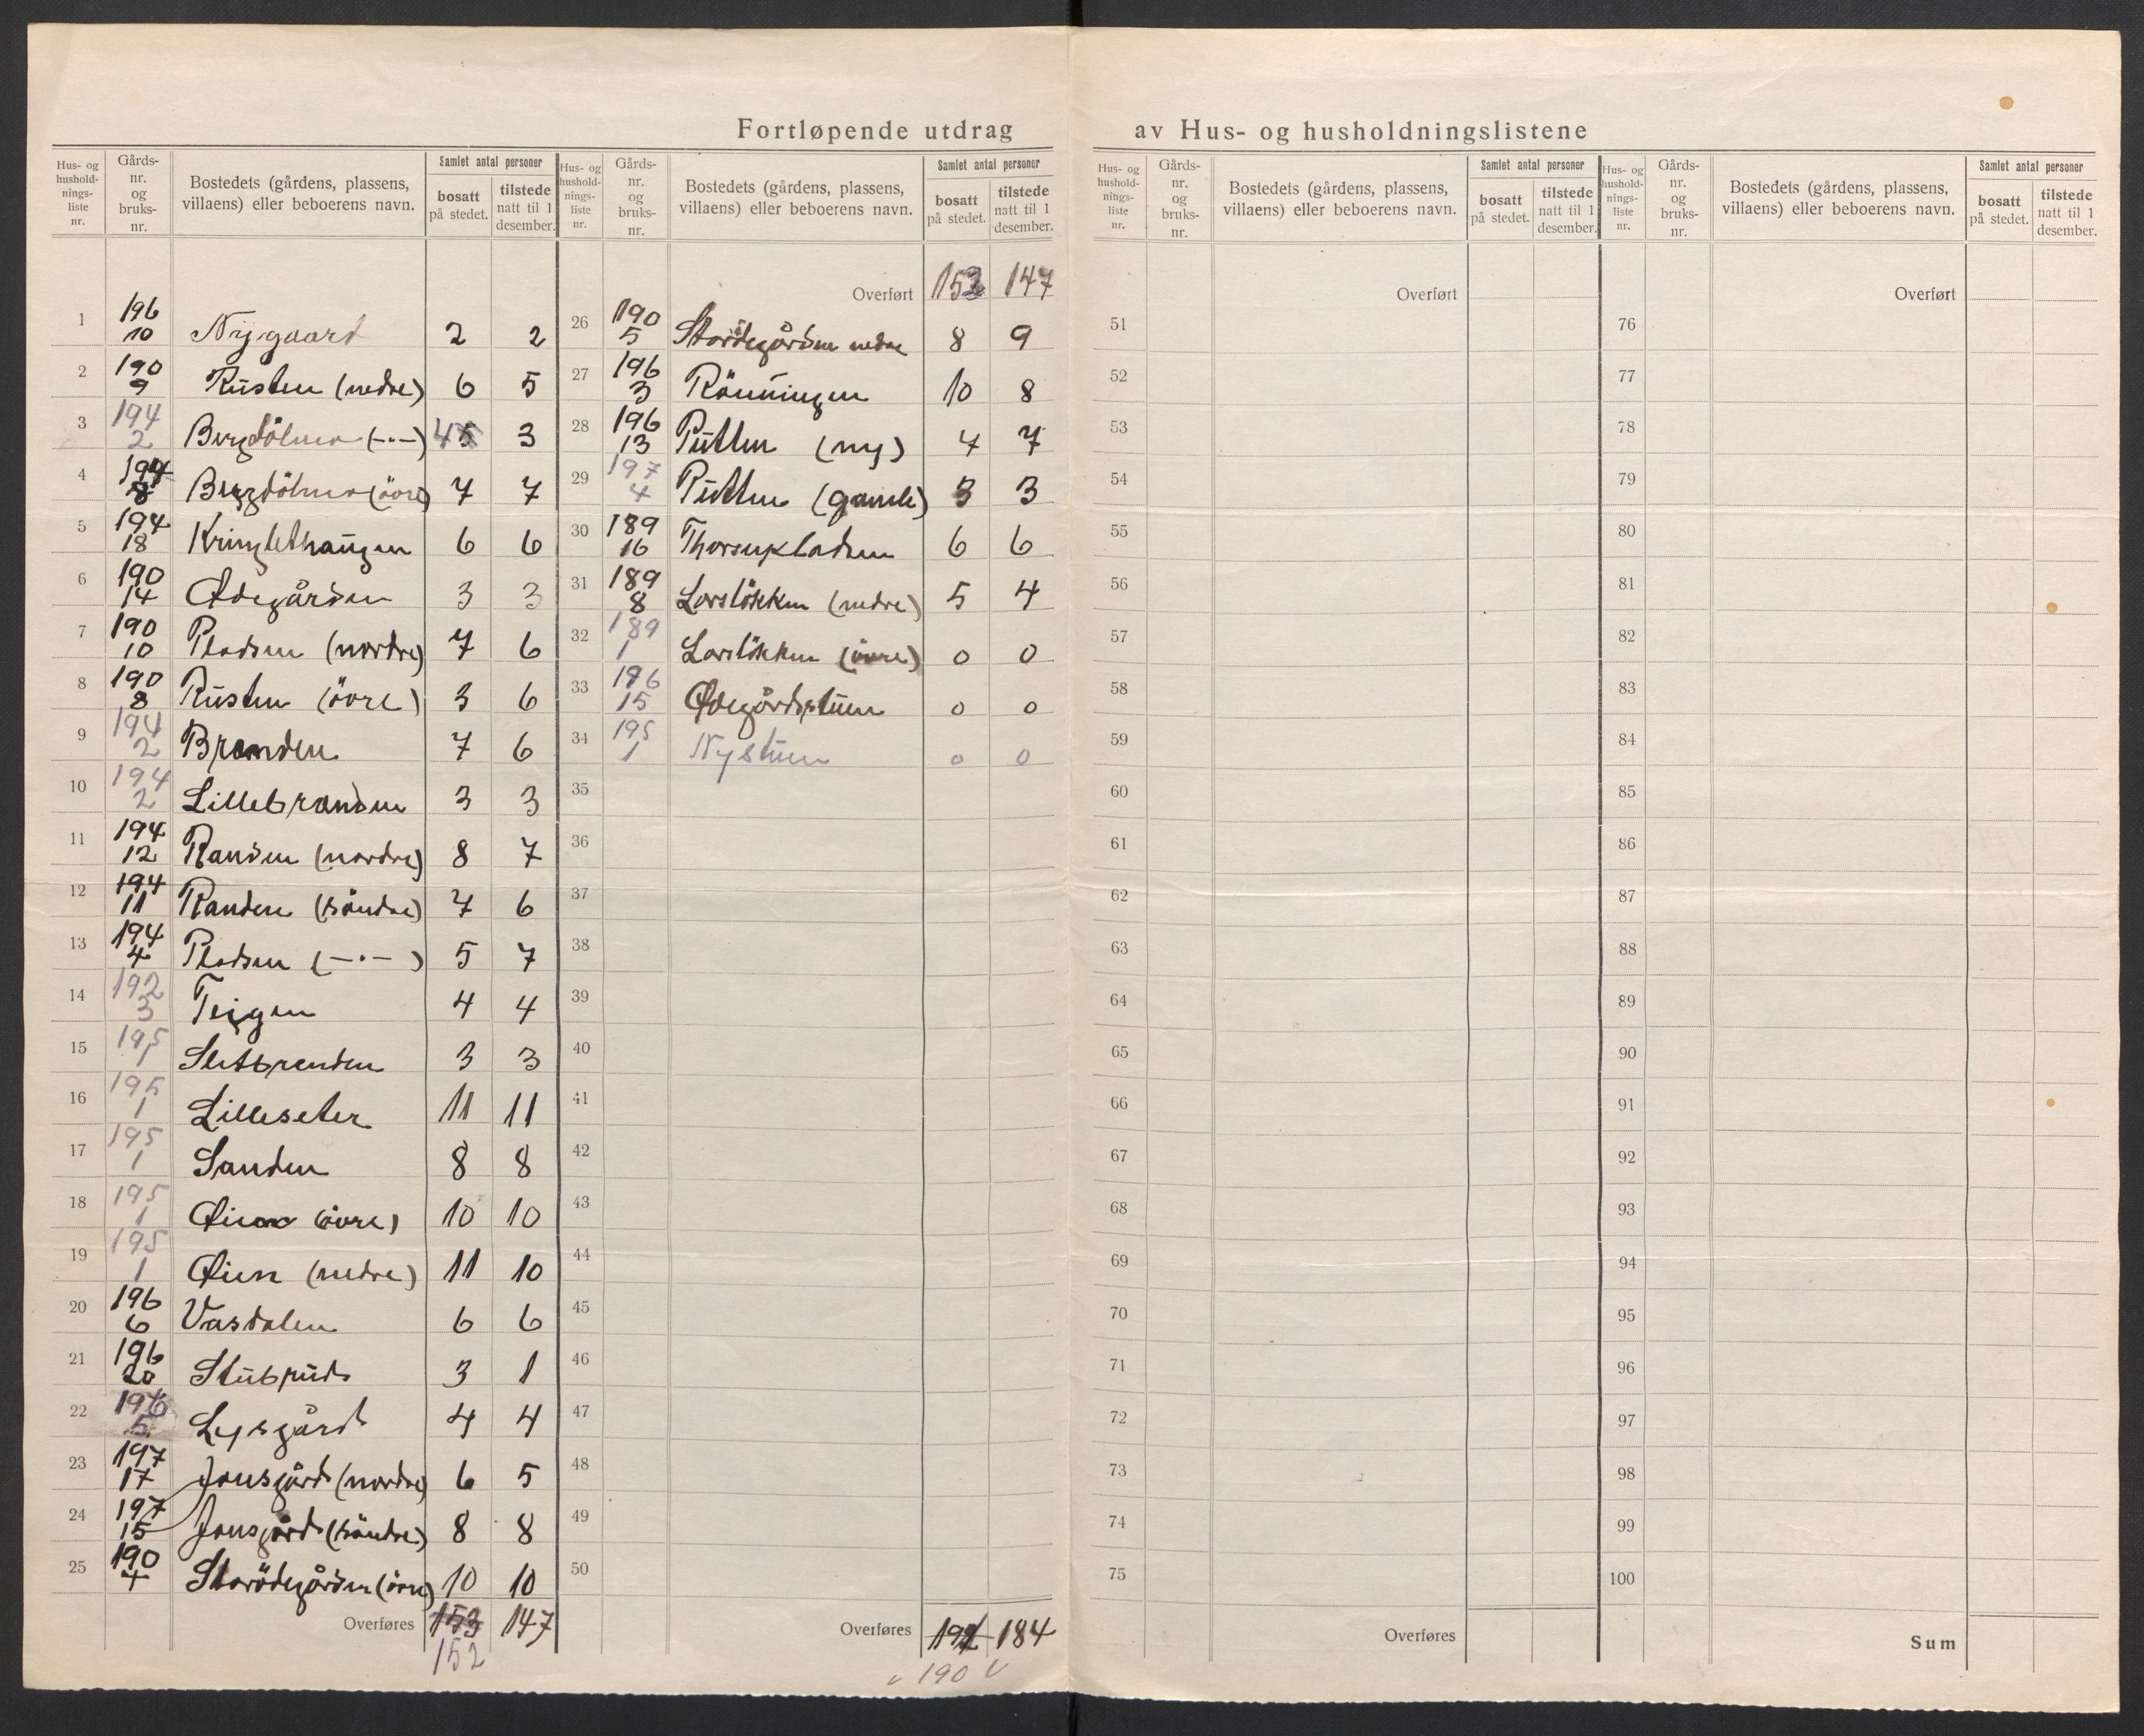 Fortløpende utdrag av Hus- og husholdningslistene
Hus- og hushold-nings-liste nr. Gårds-nr. og bruks-nr. Bostedets (gårdens, plassens, villaens) eller beboerens navn. Samlet antal personer bosatt på stedet. tilstede natt til 1 desember.
1 196 10 Nygaard 2 2
2 190 9 Rusten (nedre) 6 5
3 194 2 Bergdölmo (-"-) 4 3
4 194 8 Bergdölmo (övre) 7 7
5 194 18 Kringlethaugen 6 6
6 190 14 Ødegården 3 3
7 190 10 Pladsen (nordre) 7 6
8 190 8 Rusten (övre) 3 6
9 194 2 Branden 7 6
10 194 2 Lillebranden 3 3
11 194 12 Randen (nordre) 8 7
12 194 11 Randen (söndre) 7 6
13 194 4 Pladsen (-"-) 5 7
14 192 3 Teigen 4 4
15 195 1 Sletbrenden 3 3
16 195 1 Lilleseter 11 11
17 195 1 Sanden 8 8
18 195 1 Øien (övre) 10 10
19 195 1 Øien (nedre) 11 10
20 196 6 Vasdalen 6 6
21 196 20 Stubrud 3 1
22 196 5 Lysgård 4 4
23 197 17 Jonsgård (nordre) 6 5
24 197 15 Jonsgård (söndre) 8 8
25 190 4 Storödegården (övre) 10 10
Overføres 153 147
152
Hus- og hushold-nings-liste nr. Gårds-nr. og bruks-nr. Bostedets (gårdens, plassens, villaens) eller beboerens navn. Samlet antal personer bosatt på stedet. tilstede natt til 1 desember.
Overført 152 147
26 190 5 Storödegården nedre 8 9
27 196 3 Rönningen 10 8
28 196 13 Putten (ny) 4 7
29 197 4 Putten (gamle) 3 3
30 189 16 Thorsenpladsen 6 6
31 189 8 Larslökken (nedre) 5 4
32 189 1 Larslökken (övre) 0 0
33 196 15 Ødegårdsstuen 0 0
34 195 1 Nystuen 0 0
35
36
37
38
39
40
41
42
43
44
45
46
47
48
49
50
Overføres 191 184
190
Hus- og hushold-nings-liste nr. Gårds-nr. og bruks-nr. Bostedets (gårdens, plassens, villaens) eller beboerens navn. Samlet antal personer bosatt på stedet. tilstede natt til 1 desember.
Overført
51
52
53
54
55
56
57
58
59
60
61
62
63
64
65
66
67
68
69
70
71
72
73
74
75
Overføres
Hus- og hushold-nings-liste nr. Gårds-nr. og bruks-nr. Bostedets (gårdens, plassens, villaens) eller beboerens navn. Samlet antal personer bosatt på stedet. tilstede natt til 1 desember.
Overført
76
77
78
79
80
81
82
83
84
85
86
87
88
89
90
91
92
93
94
95
96
97
98
99
100
Sum